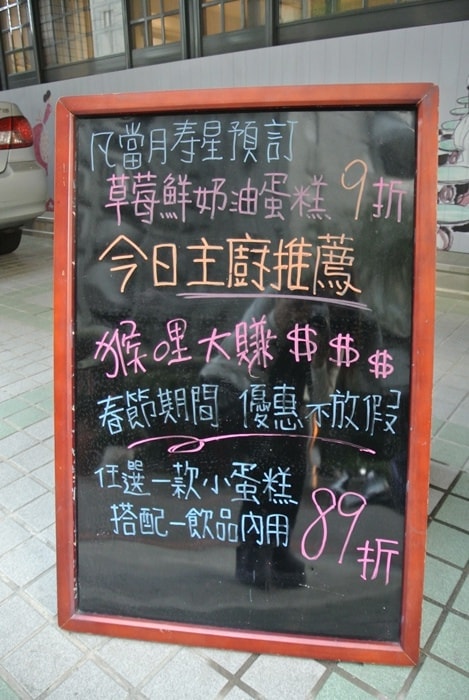 凡當月寿星預訂
草莓鮮奶油蛋糕 9折
今日主廚推薦
猴哩大賺 $ $ $
春節期間 優惠不放假
任選一款小蛋糕
搭配一飲品內用 89折